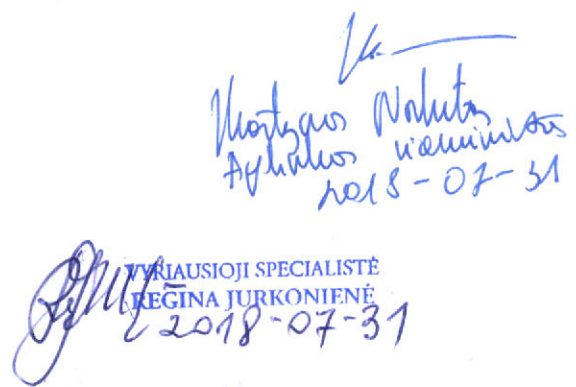 Martynas Norbutas
Aplinkos viceministras
2018-07-31
VYRIAUSIOJI SPECIALISTĖ
REGINA JURKONIENĖ
2018-07-31